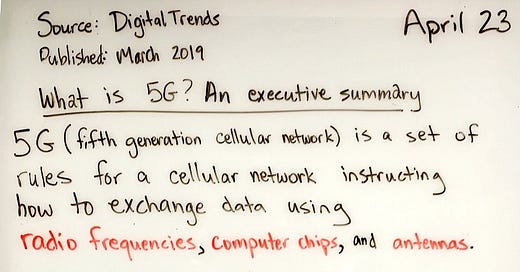 Source: Digital Trends
April 23
Published: March 2019
What is 5G? An executive summary
5G (fifth generation cellular network) is a set of
rules for a cellular network instructing
how to exchange data using
radio frequencies, computer chips, and antennas.